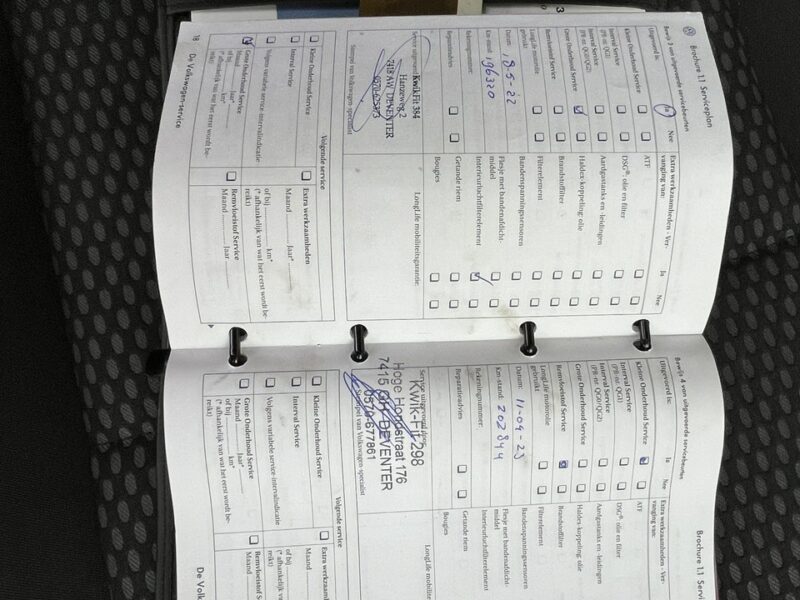 Brochure 1.1 Serviceplan
Bewijs 3 van uitgevoerde servicebeurten
Uitgevoerd is:
Ja
Nee
Kleine Onderhoud Service
Interval Service
(PR-nr. QG1)
Interval Service
(PR-nr. QG0/QG2)
Grote Onderhoud Service
Remvloeistof Service
LongLife motorolie
gebruikt
Datum: 18-5-22
Km-stand: 196320
Rekeningnummer:
Reparatieadvies
Extra werkzaamheden - Ver-
vanging van:
Ja
Nee
ATF
DSG®: olie en filter
Aardgastanks en -leidingen
Haldex-koppeling: olie
Brandstoffilter
Filterelement
Bandenspanningssensoren
Flesje met bandenafdicht-
middel
Interieurluchtfilterelement
Getande riem
Bougies
Service uitgevoerd
KwikFit 384
Hanzeweg 2
7418 AW DEVENTER
0570-625373
Stempel van Volkswagen specialist
LongLife mobiliteitsgarantie:
Volgende service
Kleine Onderhoud Service
Interval Service
Volgens variabele service-intervalindicatie
Grote Onderhoud Service
Maand Jaar*
of bij km*
(* afhankelijk van wat het eerst wordt be-
reikt)
Extra werkzaamheden
Maand Jaar*
of bij km*
(* afhankelijk van wat het eerst wordt be-
reikt)
Remvloeistof Service
Maand Jaar
18 De Volkswagen-service
Brochure 1.1 Servi
Bewijs 4 van uitgevoerde servicebeurten
Uitgevoerd is:
Ja
Nee
Kleine Onderhoud Service
Interval Service
(PR-nr. QG1)
Interval Service
(PR-nr. QG0/QG2)
Grote Onderhoud Service
Remvloeistof Service
LongLife motorolie
gebruikt
Datum: 11-04-23
Km-stand: 202844
Rekeningnummer:
Reparatieadvies
Extra werkzaamheden - Ver-
vanging van:
ATF
DSG®: olie en filter
Aardgastanks en -leidingen
Haldex-koppeling: olie
Brandstoffilter
Filterelement
Bandenspanningssensoren
Flesje met bandenafdicht-
middel
Interieurluchtfilterelement
Getande riem
Bougies
Service uitgevoerd door:
Kwik-Fit 298
Hoge Hondstraat 176
DEVENTER
0570-677861
Stempel van Volkswagen specialist
LongLife mobilite
Volgende service
Kleine Onderhoud Service
Interval Service
Volgens variabele service-intervalindicatie
Grote Onderhoud Service
Maand Jaar*
of bij km*
(* afhankelijk van wat het eerst wordt be-
reikt)
Extra werkzaam
Maand
of bij
(* afhankelijk v
reikt)
Remvloeistof Se
Maand
De Volk